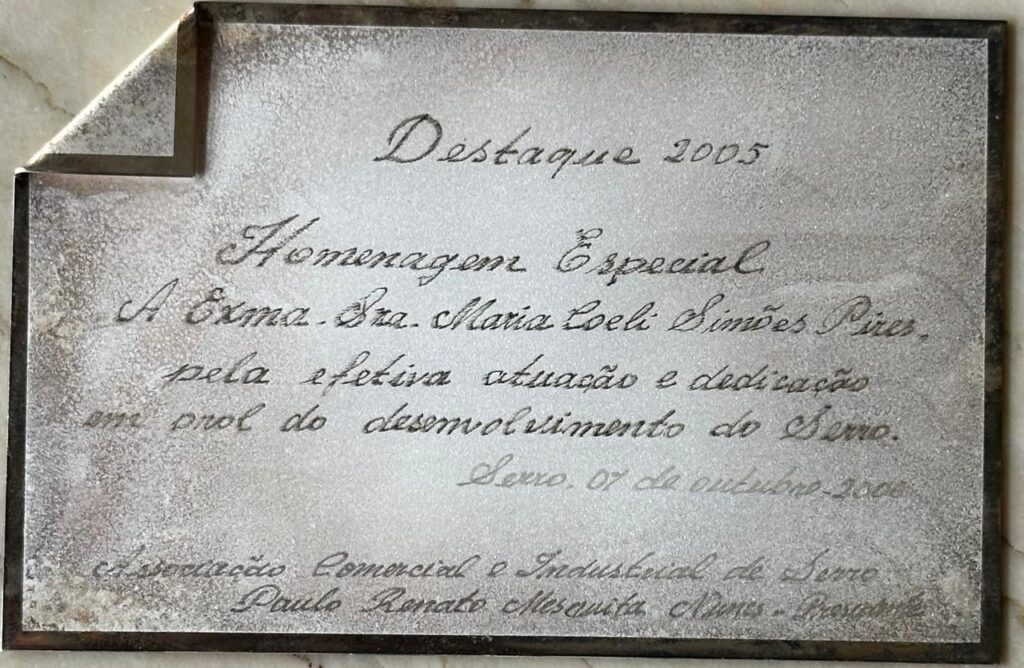 Destaque 2005
Homenagem Especial
A Exma. Sra. Maria Coeli Simões Pires.
pela efetiva atuação e dedicação
em prol do desenvolvimento do Serro.
Serro, 07 de outubro-2006
Associação Comercial e Industrial de Serro
Paulo Renato Mesquita Nunes - Presidente